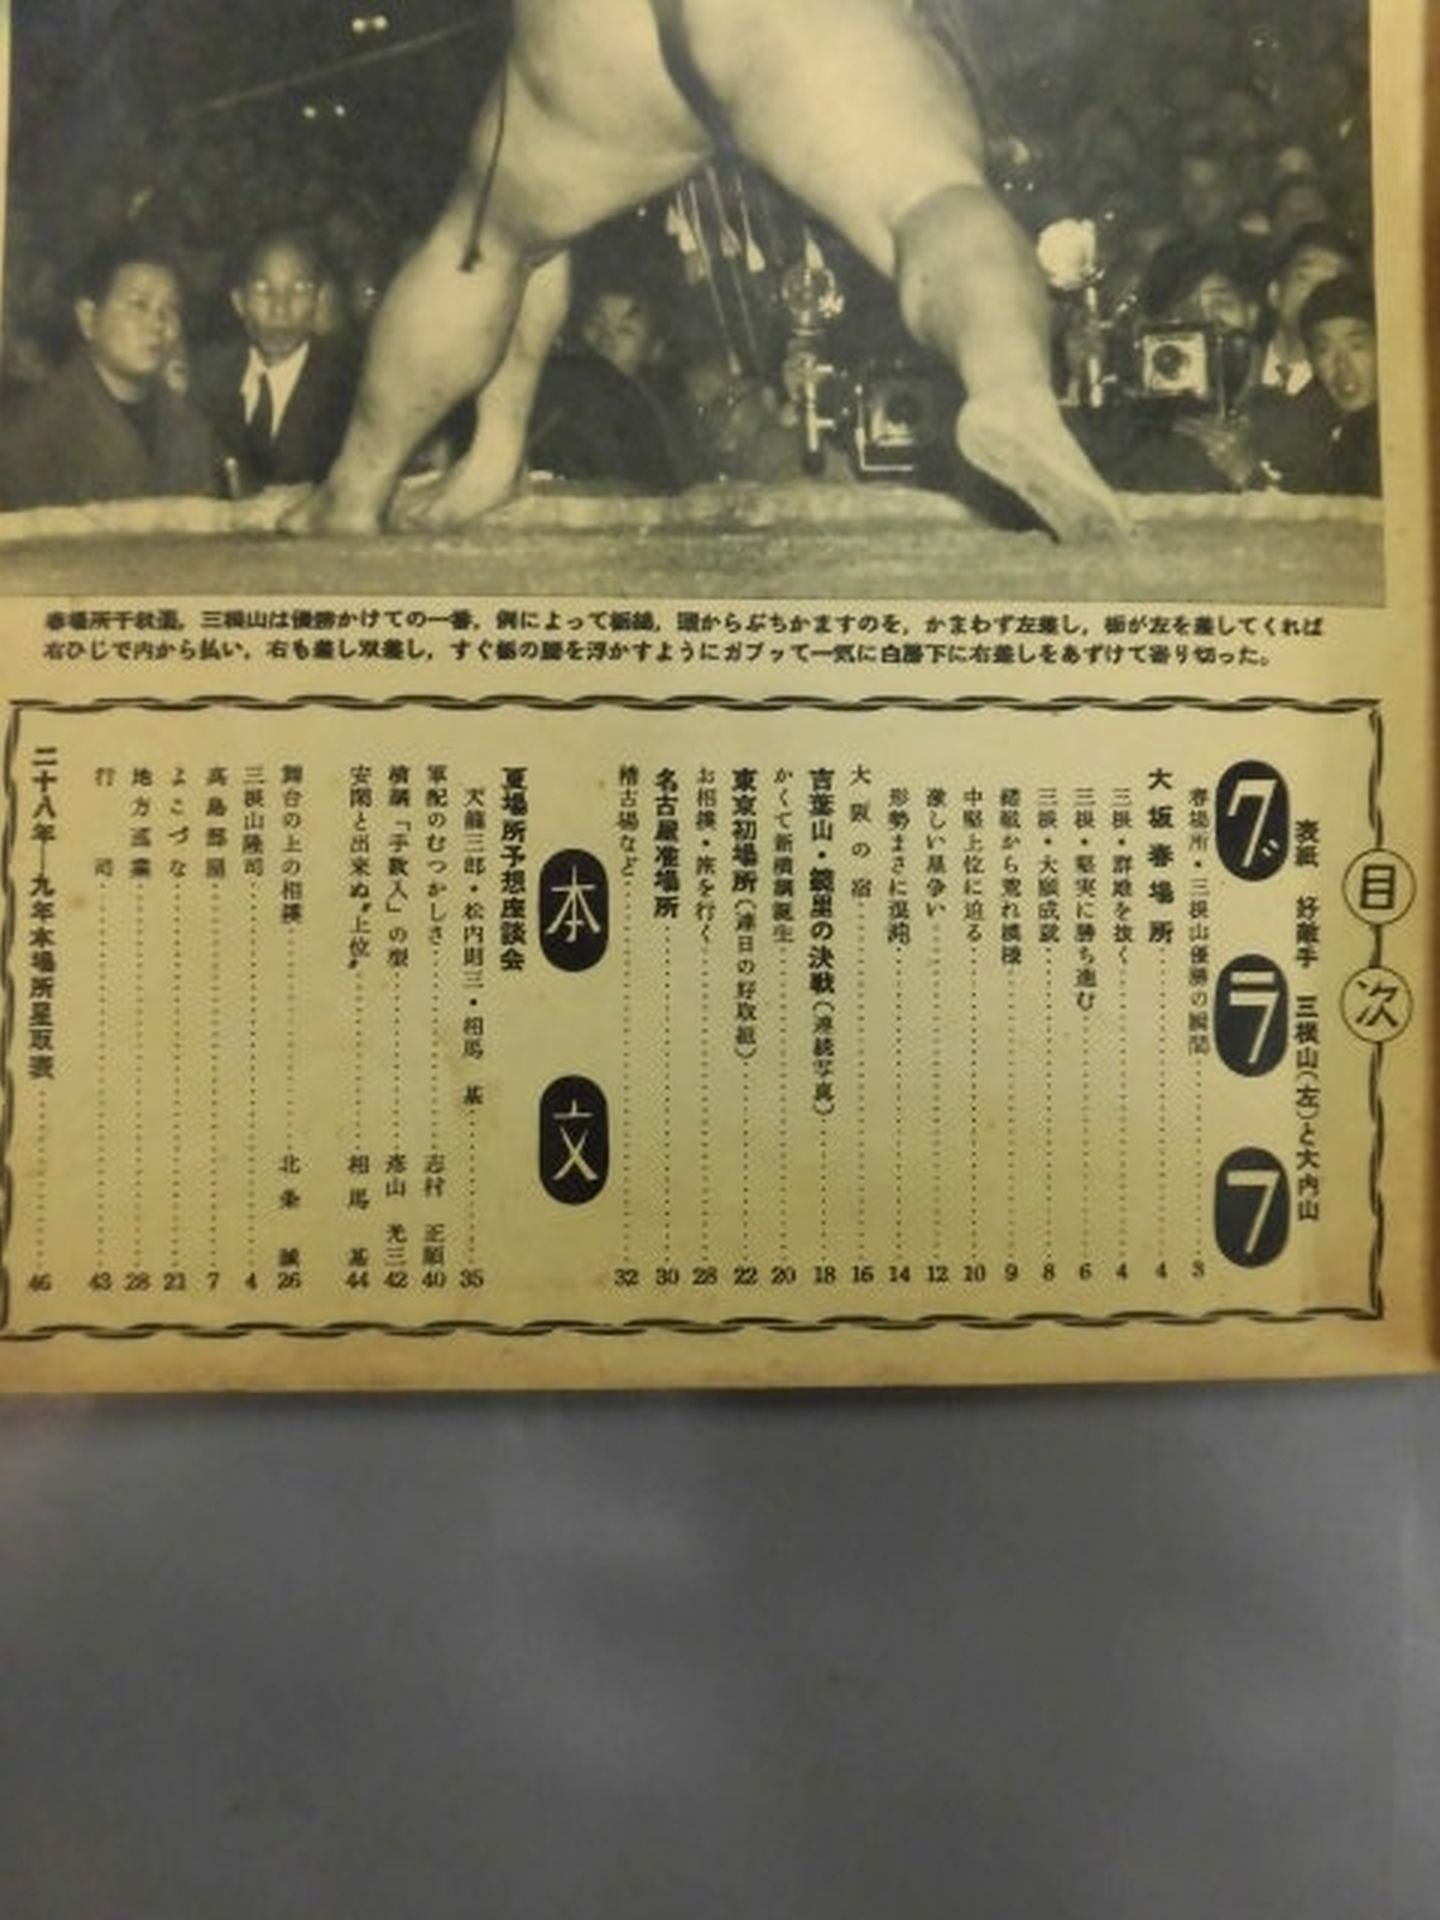 春場所千秋楽、三根山は優勝かけての一番、例によって栃錦、頭からぶちかますのを、かまわず左差し、栃が左を差してくれば
右ひじで内から払い、右も差し双差し、すぐ栃の腰を浮かすようにガブッて一気に白房下に右差しをあずけて寄り切った。
目次
表紙 好敵手 三根山(左)と大内山
グラフ
春場所・三根山優勝の瞬間 3
大坂春場所 4
三根・群雄を抜く 4
三根・堅実に勝ち進む 6
三根・大願成就 8
緒戦から荒れ模様 9
中堅上位に迫る 10
激しい星争い 12
形勢まさに混沌 14
大阪の宿 16
吉葉山・鏡里の決戦(連続写真) 18
かくて新横綱誕生 20
東京初場所(連日の好取組) 22
お相撲・旅を行く 28
名古屋準場所 30
稽古場など 32
本文
夏場所予想座談会
天龍三郎・松内則三・相馬 基 35
軍配のむつかしさ 志村 正順 40
横綱「手数入」の型 彦山 光三 42
安閑と出来ぬ〝上位〟 相馬 基 44
舞台の上の相撲 北条 誠 26
三根山隆司 4
高島部屋 7
よこづな 21
地方巡業 28
行司 43
二十八年―九年本場所星取表 46